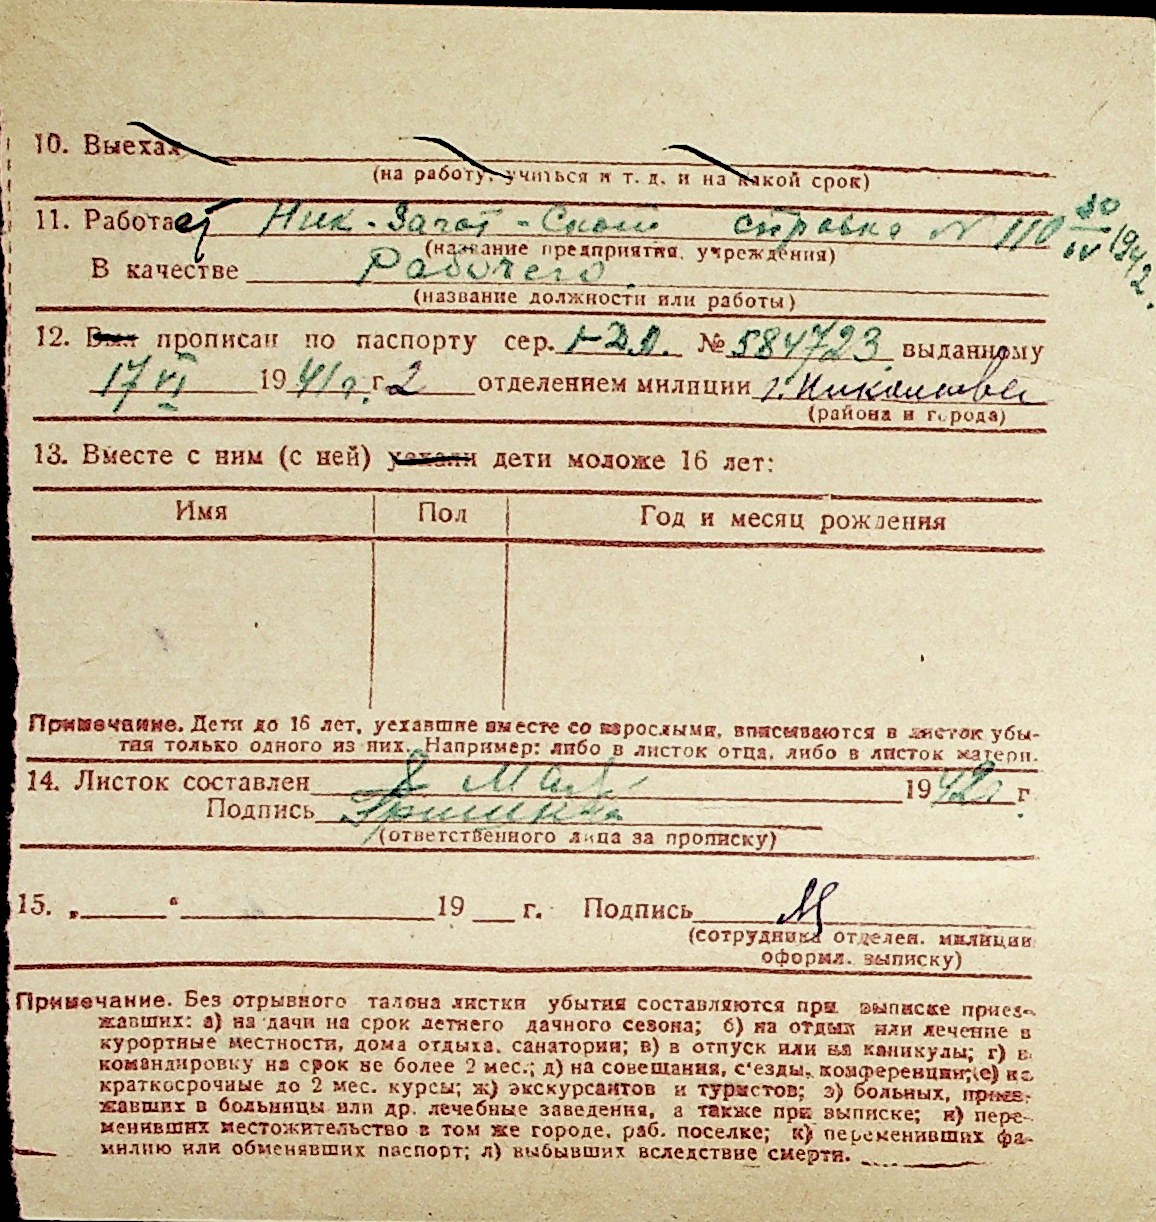 10. Выехал
(на работу, учиться и т. д. и на какой срок)
11. Работает Ник-Загот-Скот справка № 110 30/IV 1942.
(название предприятия, учреждения)
В качестве Рабочего.
(название должности или работы)
12. Был прописан по паспорту сер. I-ДЛ. № 584723 выданному
17 VI 1941 г. г. 2 отделением милиции г. Николаева
(района и города)
13. Вместе с ним (с ней) уехали дети моложе 16 лет:
Имя Пол Год и месяц рождения
Примечание. Дети до 16 лет, уехавшие вместе со взрослыми, вписываются в листок убы-
тия только одного из них. Например: либо в листок отца, либо в листок матери.
14. Листок составлен 8 Мая 1942 г г.
Подпись
(ответственного лица за прописку)
15. „ “ 19 г. Подпись
(сотрудника отделен. милиции
оформл. выписку)
Примечание. Без отрывного талона листки убытия составляются при выписке приез-
жавших: а) на дачи на срок летнего дачного сезона; б) на отдых или лечение в
курортные местности, дома отдыха, санатории; в) в отпуск или на каникулы; г) в
командировку на срок не более 2 мес.; д) на совещания, с'езды, конференции; е) на
краткосрочные до 2 мес. курсы; ж) экскурсантов и туристов; з) больных, приез-
жавших в больницы или др. лечебные заведения, а также при выписке; и) пере-
менивших местожительство в том же городе, раб. поселке; к) переменивших фа-
милию или обменявших паспорт; л) выбывших вследствие смерти.